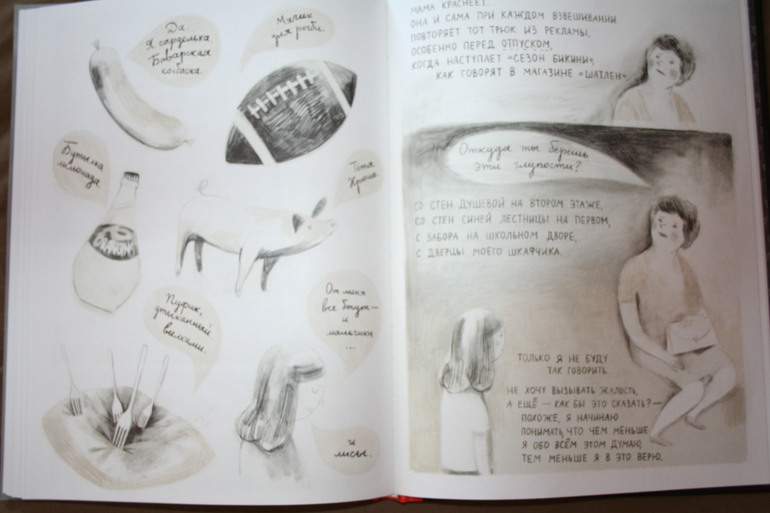 Да
я сарделька
Баварская
колбаска.
Мячик
для регби.
Бутылка
лимонада
Тётя
Хрюша
ORANGINA
Пуфик,
утыканный
вилками.
От меня
все бегут —
и
мальчики
...
и
лисы.
МАМА КРАСНЕЕТ.
ОНА И САМА ПРИ КАЖДОМ ВЗВЕШИВАНИИ
ПОВТОРЯЕТ ТОТ ТРЮК ИЗ РЕКЛАМЫ,
ОСОБЕННО ПЕРЕД ОТПУСКОМ,
КОГДА НАСТУПАЕТ «СЕЗОН БИКИНИ»,
КАК ГОВОРЯТ В МАГАЗИНЕ «ШАТЛЕН».
Откуда ты берёшь
эти глупости?
СО СТЕН ДУШЕВОЙ НА ВТОРОМ ЭТАЖЕ,
СО СТЕН СИНЕЙ ЛЕСТНИЦЫ НА ПЕРВОМ,
С ЗАБОРА НА ШКОЛЬНОМ ДВОРЕ,
С ДВЕРЦЫ МОЕГО ШКАФЧИКА.
ТОЛЬКО Я НЕ БУДУ
ТАК ГОВОРИТЬ.
НЕ ХОЧУ ВЫЗЫВАТЬ ЖАЛОСТЬ,
А ЕЩЁ — КАК БЫ ЭТО СКАЗАТЬ? —
ПОХОЖЕ, Я НАЧИНАЮ
ПОНИМАТЬ, ЧТО ЧЕМ МЕНЬШЕ
Я ОБО ВСЁМ ЭТОМ ДУМАЮ,
ТЕМ МЕНЬШЕ Я В ЭТО ВЕРЮ.